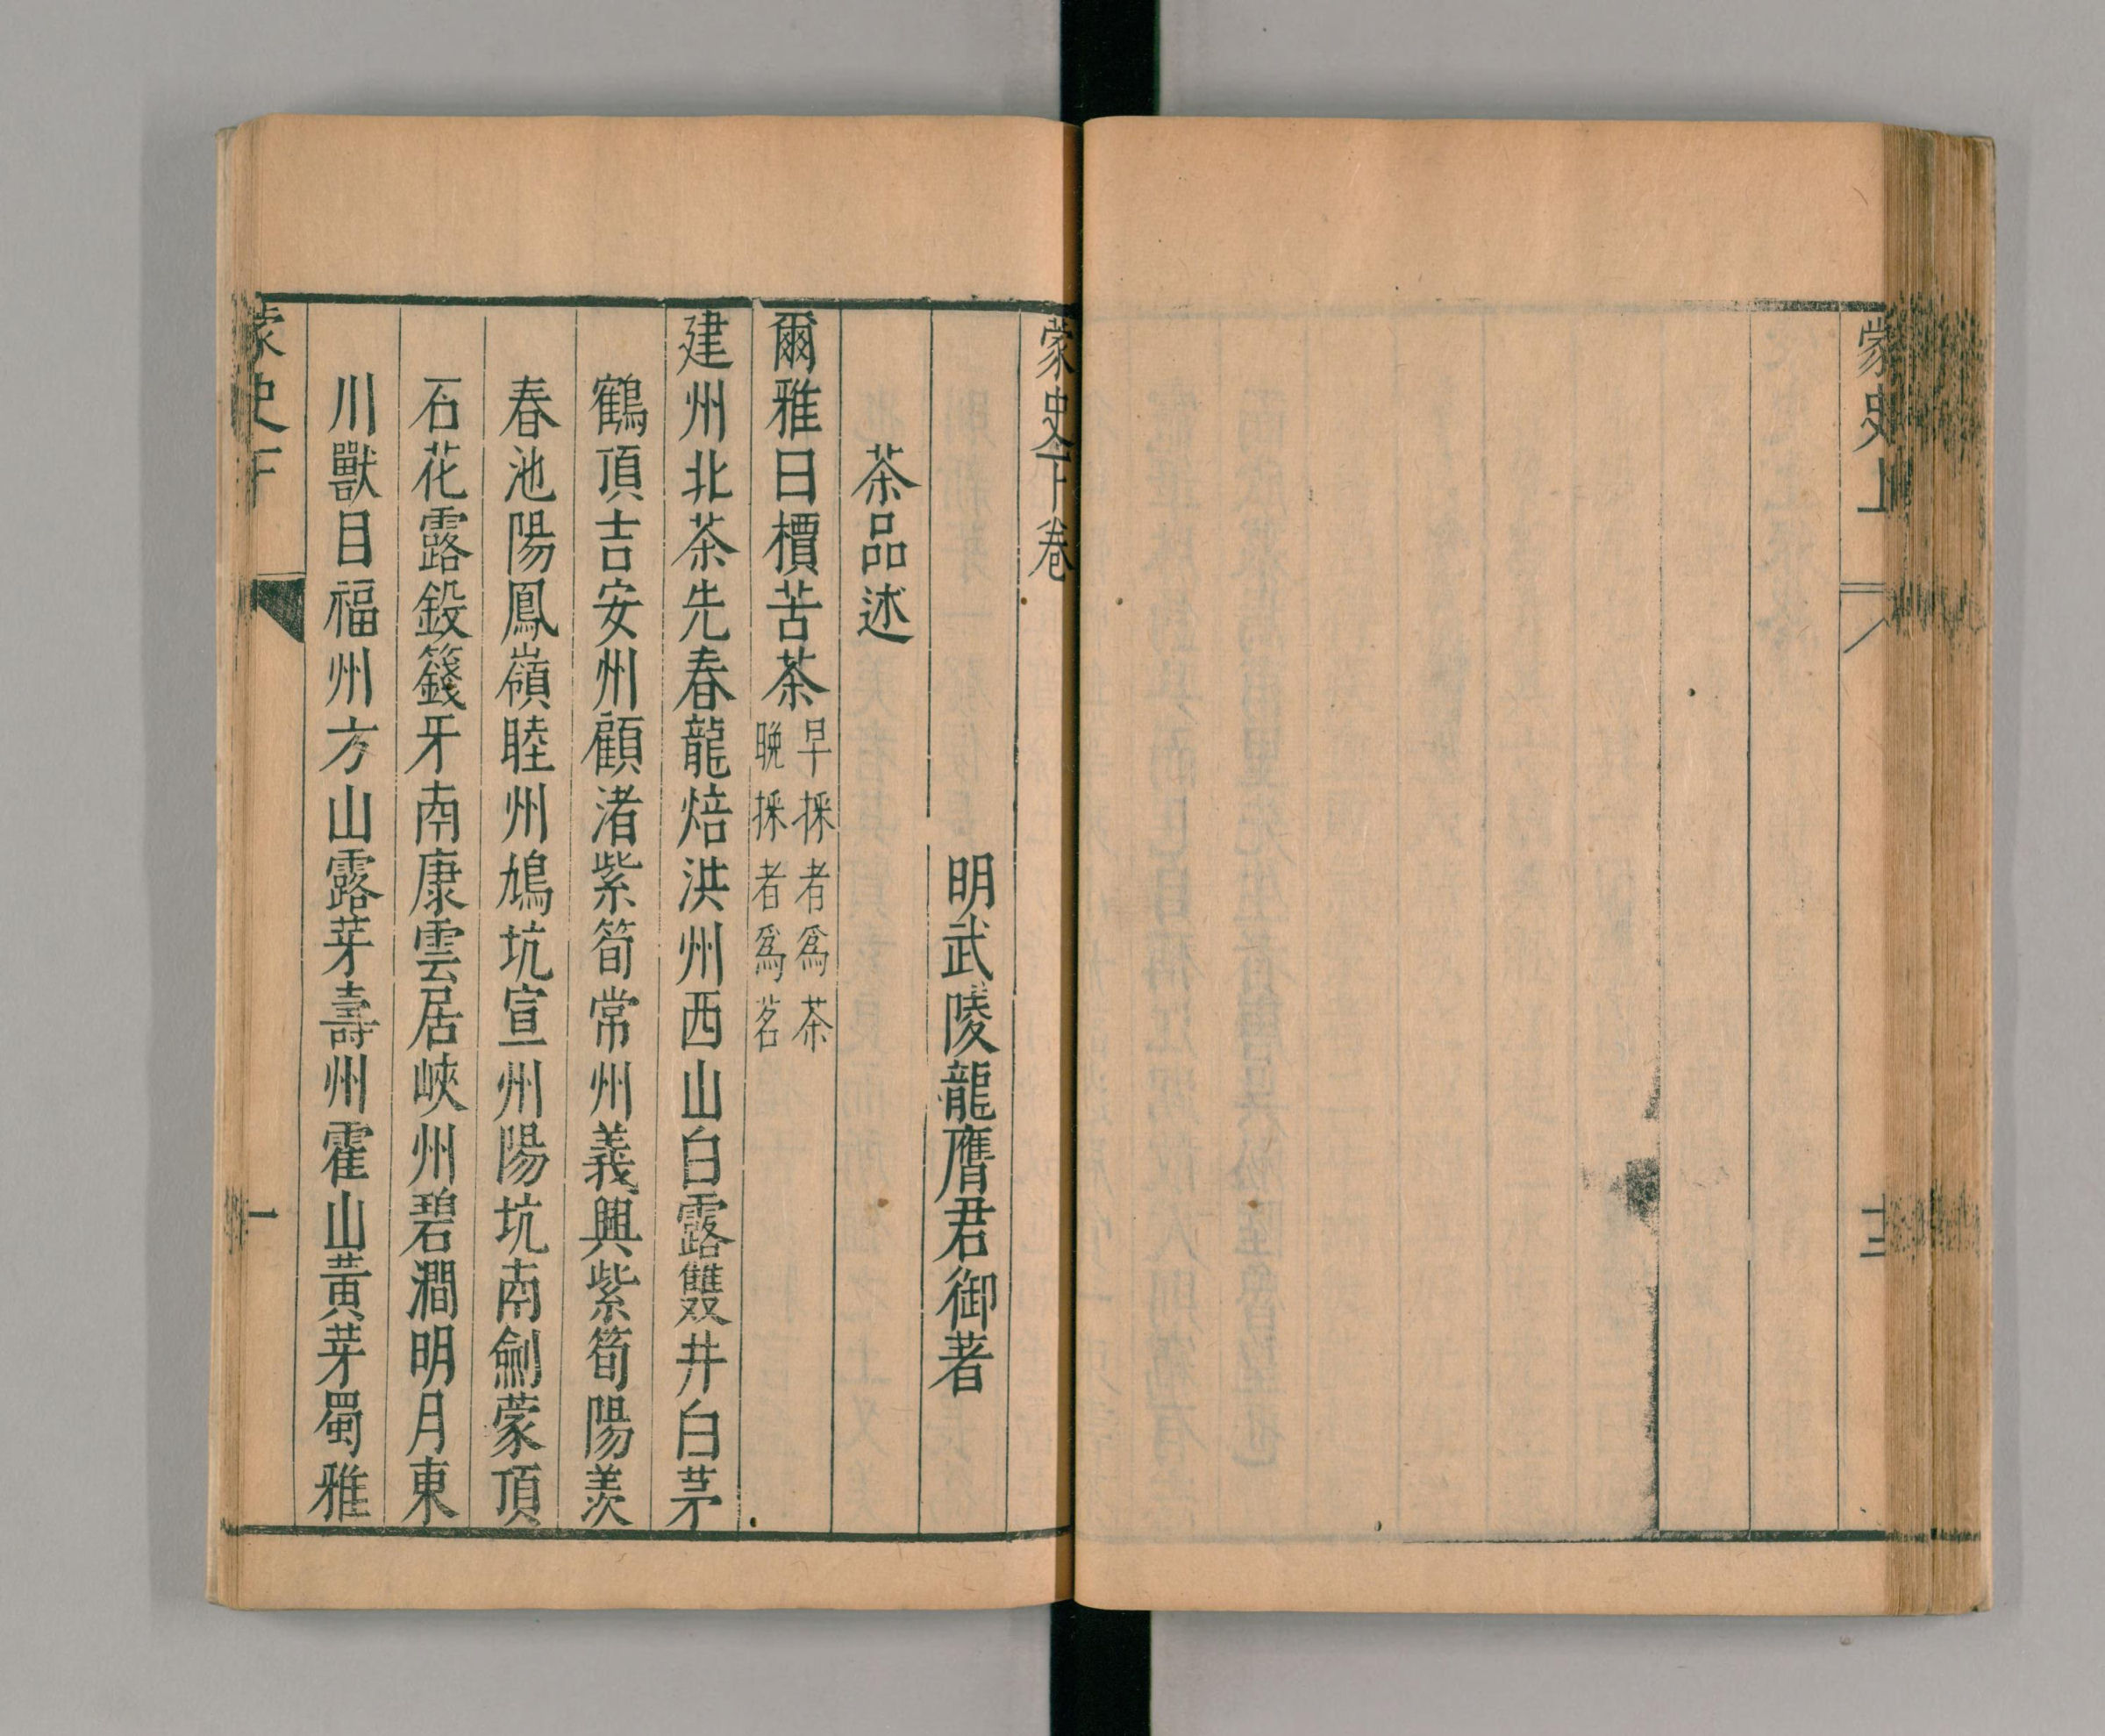 蒙史上
十三
蒙史下卷
明武陵龍膺君御著
茶品述
爾雅曰檟苦茶早採者爲茶
晚採者爲茗
建州北茶先春龍焙洪州西山白露雙井白茅
鶴頂吉安州顧渚紫筍常州義興紫筍陽羨
春池陽鳳嶺睦州鳩坑宣州陽坑南劍蒙頂
石花露鋑籛牙南康雲居峽州碧澗明月東
川獸目福州方山露芽壽州霍山黃芽蜀雅
蒙史下
一